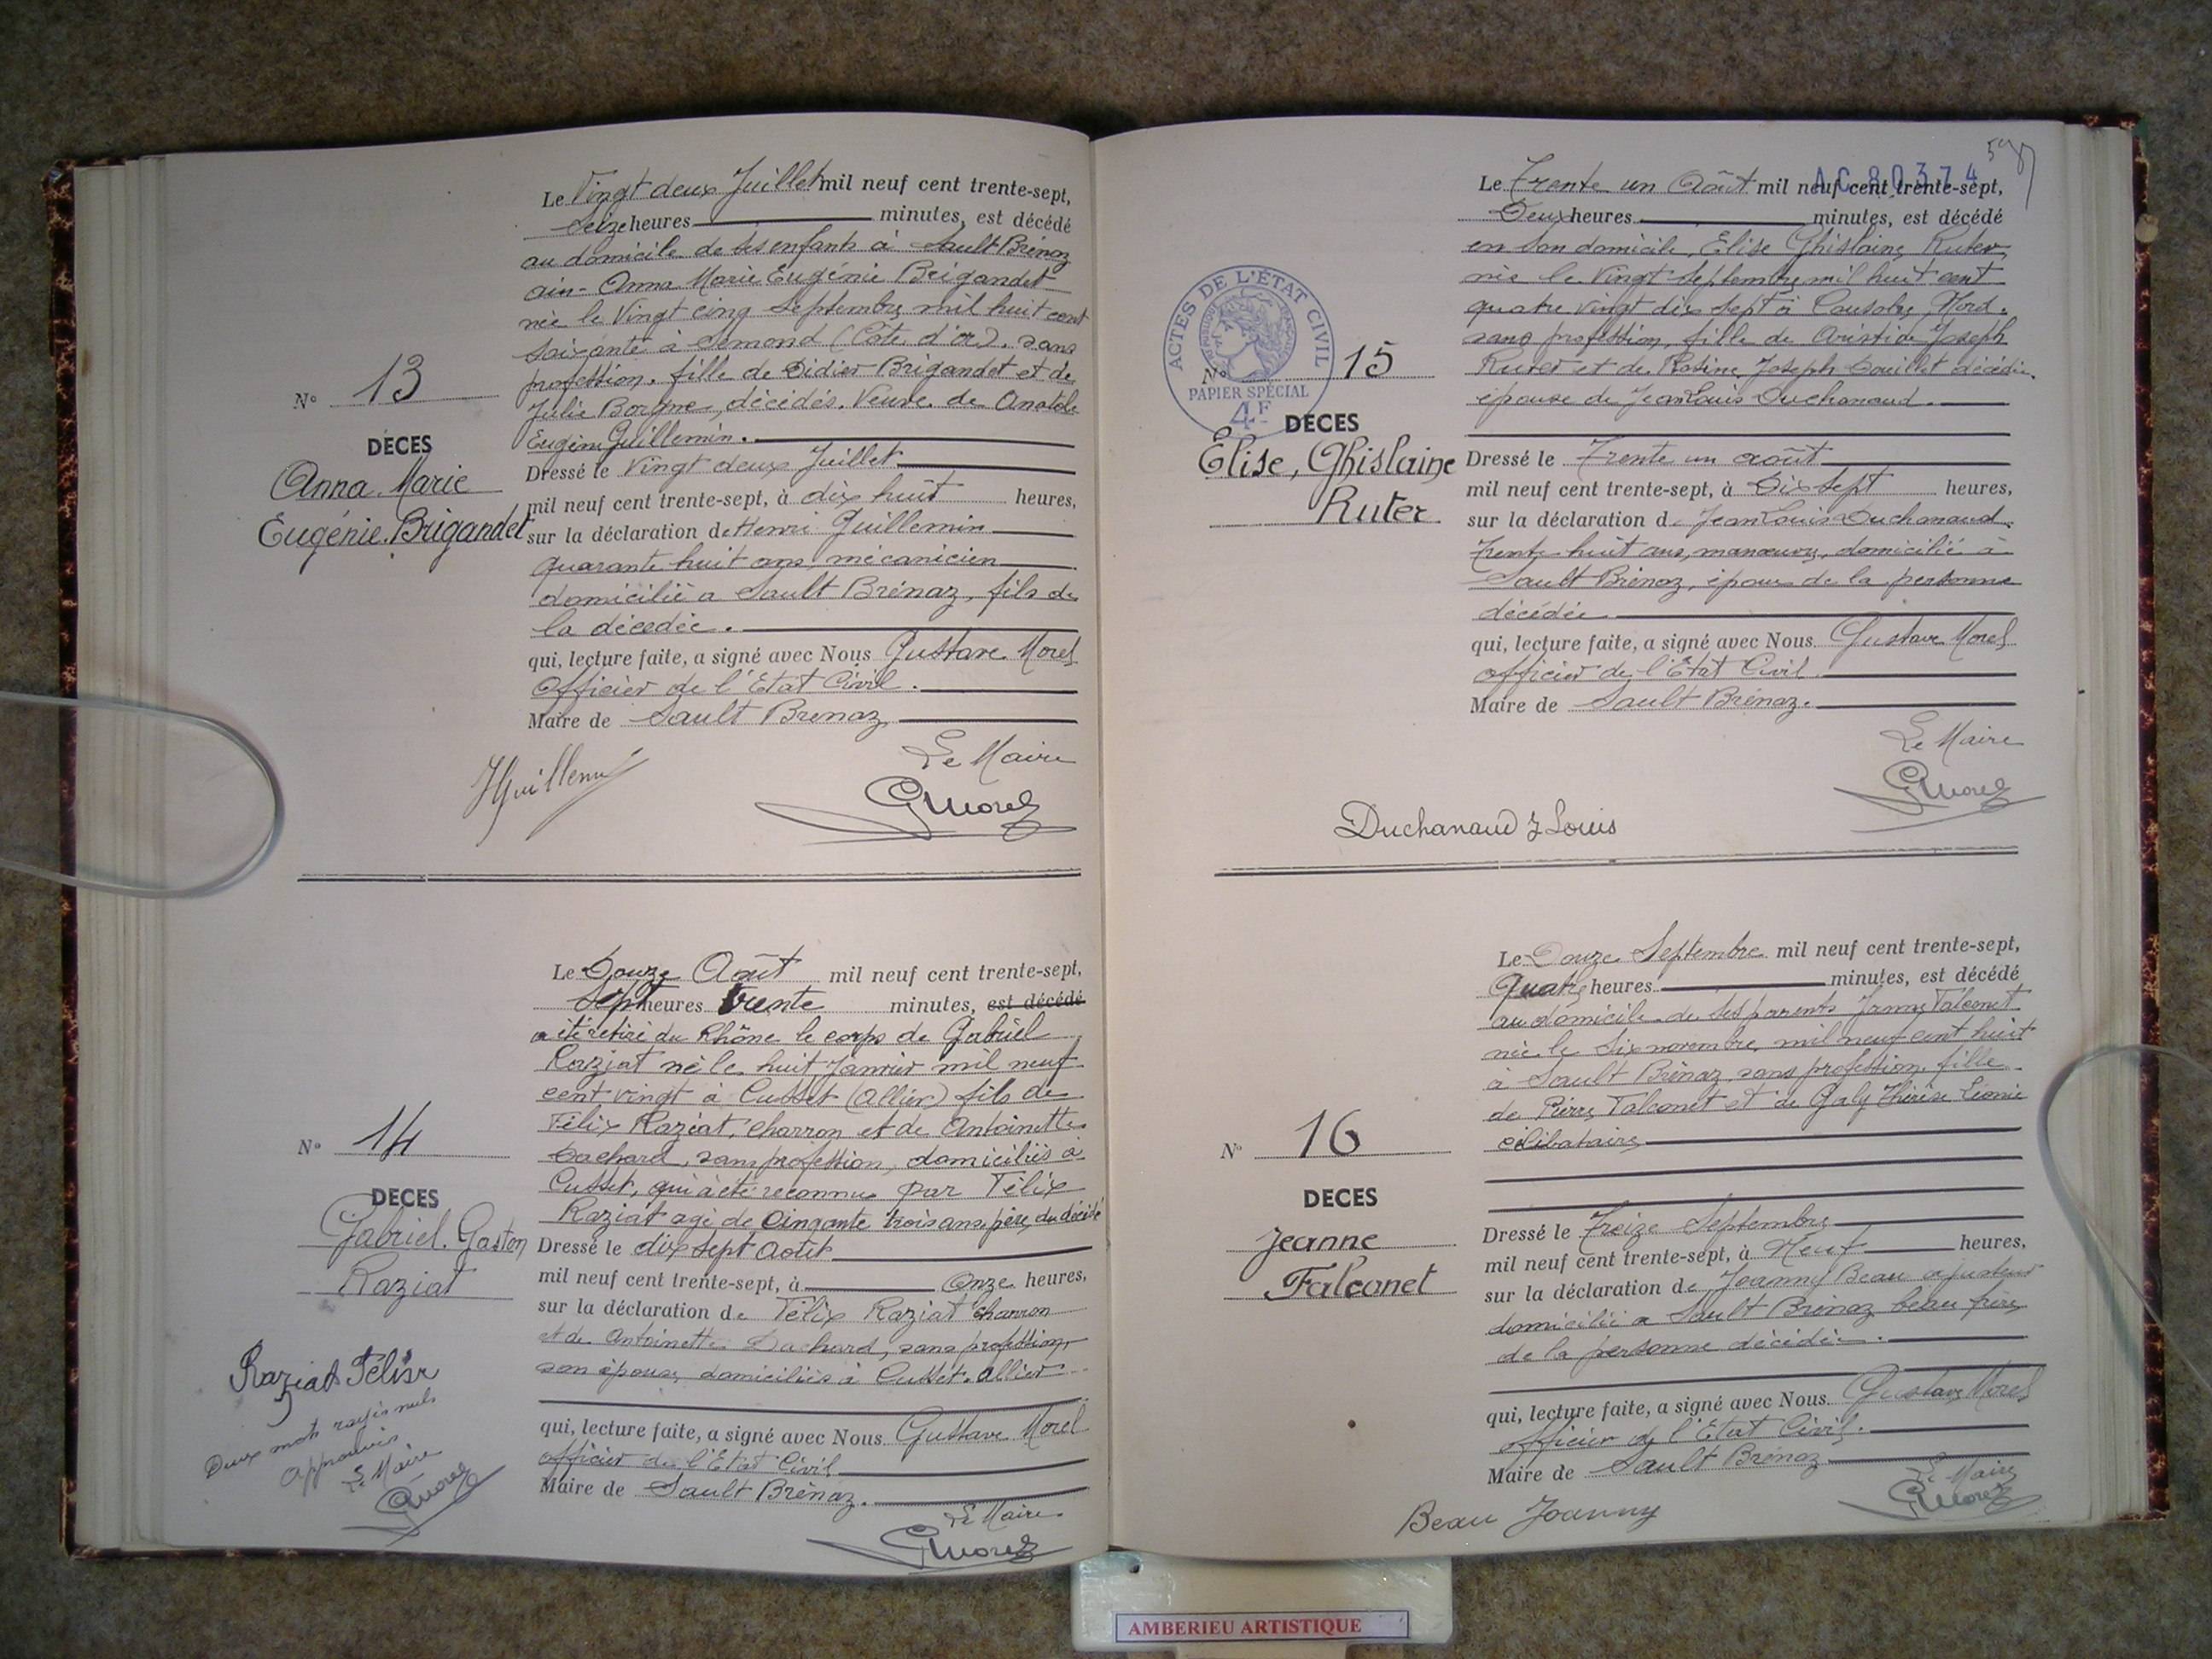 Le Vingt deux Juillet mil neuf cent trente-sept,
Seize heures minutes, est décédé
au domicile de ses enfants à Sault Brénaz
ain - Anna Marie Eugénie Brigandet
née le Vingt cinq Septembre mil huit cent
soixante à Semond (Côte d'or). sans
profession. fille de Didier Brigandet et de
Julie Borgne, décédés. Veuve de Anatole
Eugène Guillemin.
N° 13
DÉCES
Anna Marie
Eugénie Brigandet
Dressé le Vingt deux Juillet
mil neuf cent trente-sept, à dix huit heures,
sur la déclaration de Henri Guillemin
quarante huit ans mécanicien
domicilié a Sault Brénaz, fils de
la décédée.
qui, lecture faite, a signé avec Nous Gustave Morel
Officier de l'Etat Civil.
Maire de Sault Brénaz
Le Maire
HGuillemin
GMorel
Le Douze Août mil neuf cent trente-sept,
Sept heures trente minutes, est décédé
a été retiré du Rhône le corps de Gabriel
Raziat né le huit Janvier mil neuf
cent vingt à Cusset (allier) fils de
Félix Raziat, charron et de Antoinette
Dachard, sans profession, domiciliés à
Cusset, qui a été reconnu par Félix
Raziat agé de Cinqante trois ans, père du décédé
N° 14
DECES
Gabriel. Gaston
Raziat
Dressé le dix sept Août
mil neuf cent trente-sept, à Onze heures,
sur la déclaration de Félix Raziat charron
et de Antoinette Dachard, sans profession,
son épouse, domiciliés à Cusset. Allier
qui, lecture faite, a signé avec Nous Gustave Morel
officier de l'Etat Civil
Maire de Sault Brénaz.
Le Maire
GMorel
Raziat Félix
Deux mots rayés nuls
Approuvés
Le Maire
GMorel
AC 80374
Le Trente un Août mil neuf cent trente-sept,
Deux heures minutes, est décédé
en son domicile, Elise Ghislaine Ruter
née le Vingt septembre mil huit cent
quatre vingt dix sept à Cousolre, Nord.
sans profession, fille de Aristide Joseph
Ruter et de Rosine Joseph décédés.
épouse de Jean Louis Duchanaud.
ACTES DE L'ÉTAT CIVIL
RÉPUBLIQUE FRANÇAISE
PAPIER SPÉCIAL
4F
N° 15
DÉCES
Élise, Ghislaine
Ruter
Dressé le Trente un août
mil neuf cent trente-sept, à Dix sept heures,
sur la déclaration d Jean Louis Duchanaud.
Trente huit ans, manœuvre, domicilié à
Sault Brénaz, époux de la personne
décédée
qui, lecture faite, a signé avec Nous Gustave Morel
officier de l'Etat Civil
Maire de Sault Brénaz.
Le Maire
GMorel
Duchanaud J Louis
Le Douze Septembre mil neuf cent trente-sept,
Quatre heures minutes, est décédé
au domicile de ses parents Jeanne Falconet
née le Six novembre mil neuf cent huit
à Sault Brénaz, sans profession. fille
de Pierre Falconet et de Galy Thérèse Léonie
célibataire
N° 16
DECES
Jeanne
Falconet
Dressé le Treize Septembre
mil neuf cent trente-sept, à Neuf heures,
sur la déclaration de Joanny Beau ajusteur
domicilié a Sault Brénaz beau frère
de la personne décédée.
qui, lecture faite, a signé avec Nous Gustave Morel
officier de l'Etat Civil.
Maire de Sault Brénaz
Le Maire
GMorel
Beau Joanny
AMBERIEU ARTISTIQUE